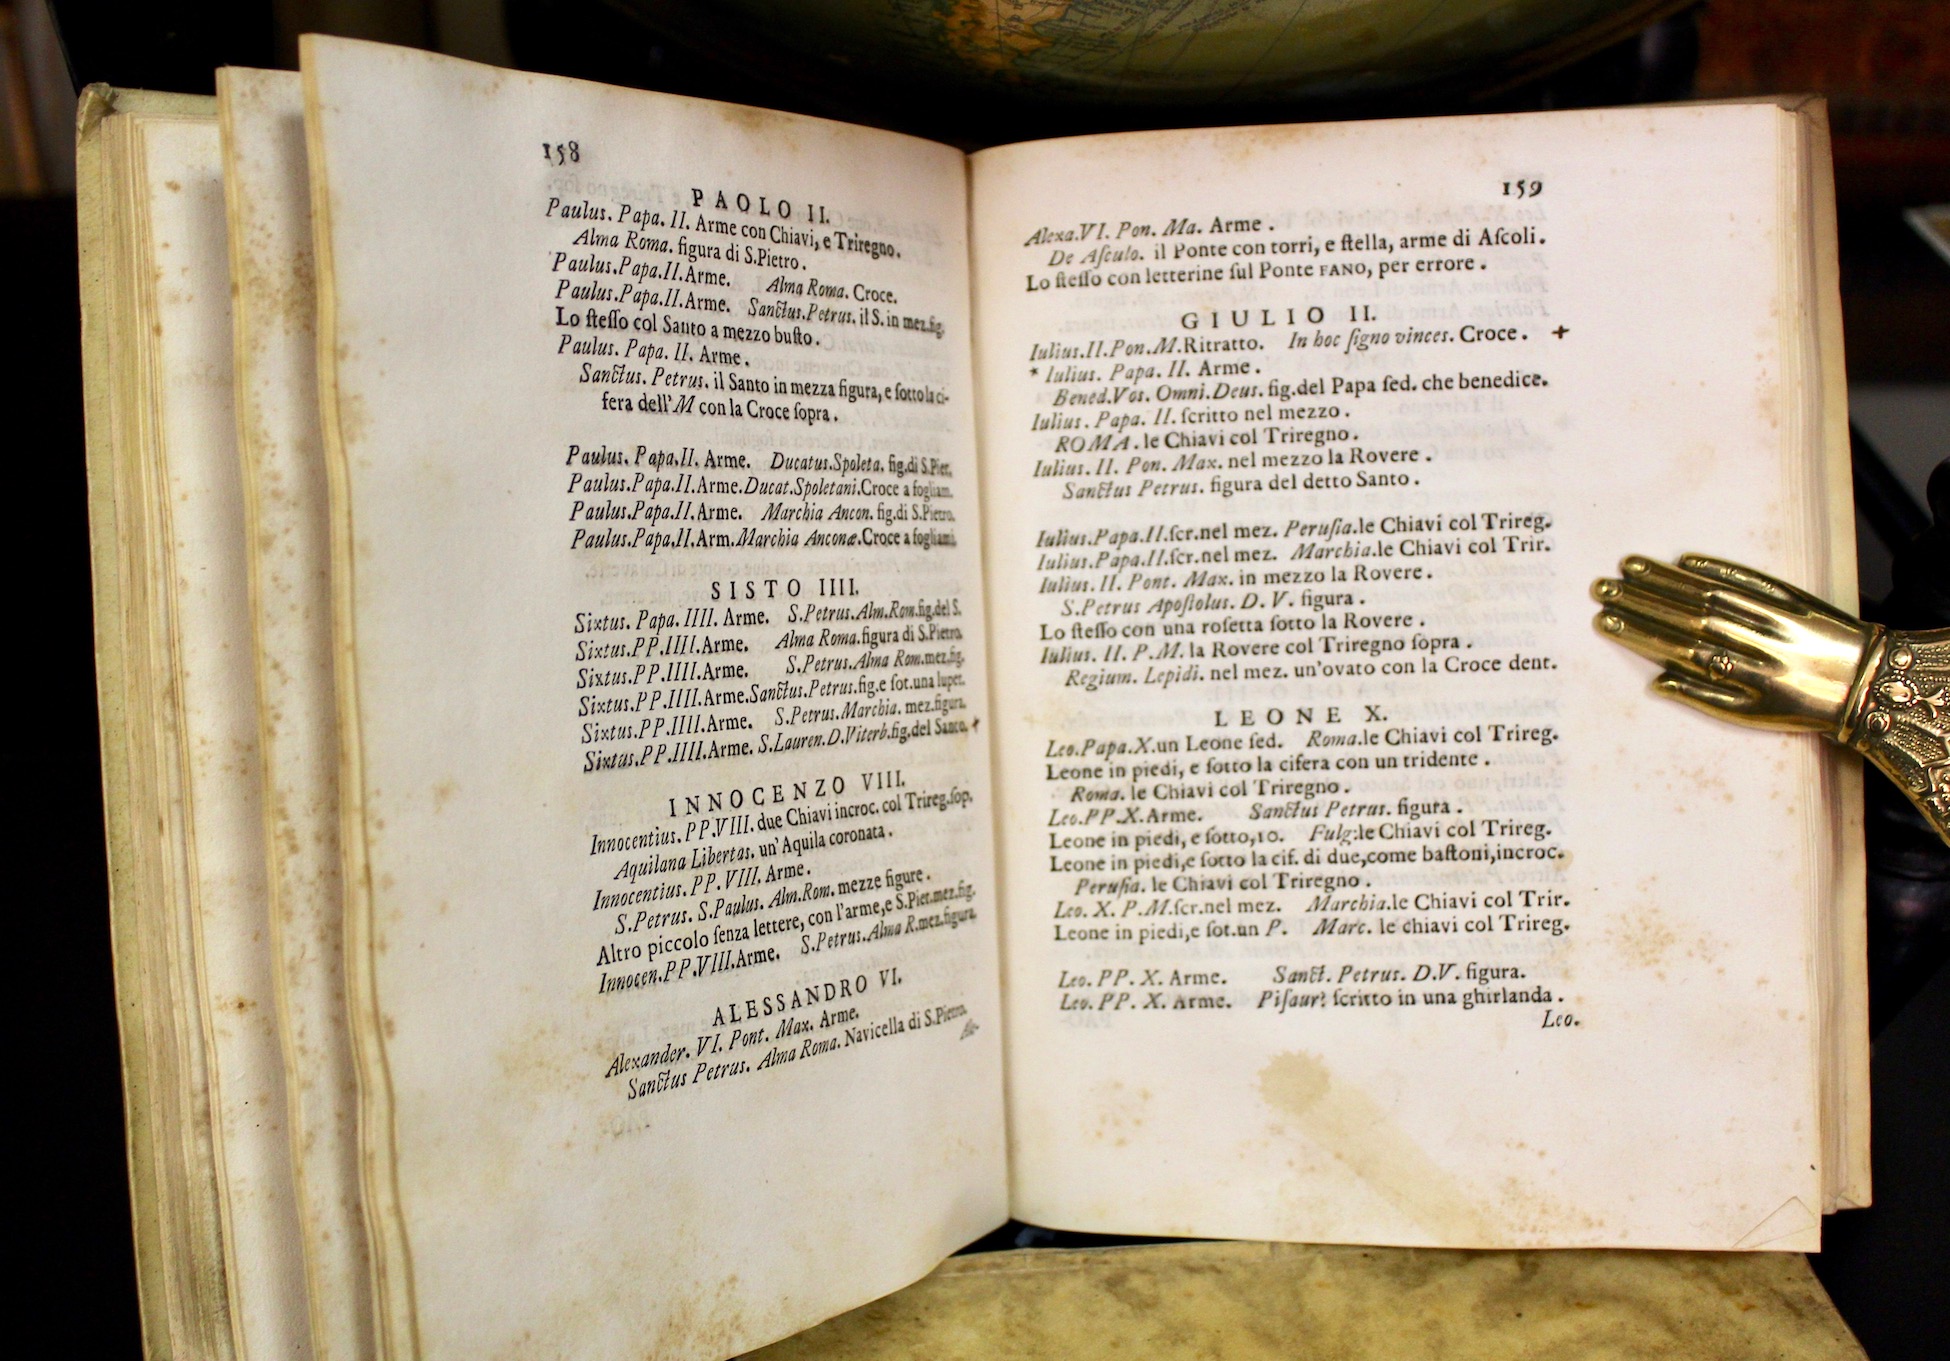 158
PAOLO II.
Paulus. Papa. II. Arme con Chiavi, e Triregno.
Alma Roma. figura di S.Pietro.
Paulus.Papa.II.Arme. Alma Roma. Croce.
Paulus.Papa.II.Arme. Sanctus.Petrus. il S. in mez.fig.
Lo ſteſſo col Santo a mezzo buſto.
Paulus. Papa. II. Arme.
Sanctus. Petrus. il Santo in mezza figura, e ſotto la ci-
fera dell'M con la Croce ſopra.
Paulus. Papa.II. Arme. Ducatus.Spoleta. fig.di S.Pier.
Paulus.Papa.II.Arme.Ducat.Spoletani.Croce a fogliam.
Paulus.Papa.II.Arme. Marchia Ancon. fig.di S.Pietro.
Paulus.Papa.II.Arm.Marchia Anconæ.Croce a fogliami.
SISTO IIII.
Sixtus. Papa. IIII. Arme. S.Petrus.Alm.Rom.fig.del S.
Sixtus.PP.IIII.Arme. Alma Roma.figura di S.Pietro.
Sixtus.PP.IIII.Arme. S.Petrus.Alma Rom.mez.fig.
Sixtus.PP.IIII.Arme.Sanctus.Petrus.fig.e ſot.una lupet.
Sixtus.PP.IIII.Arme. S.Petrus.Marchia. mez.figura.
Sixtus.PP.IIII.Arme. S.Lauren.D.Viterb.fig.del Santo. +
INNOCENZO VIII.
Innocentius. PP.VIII. due Chiavi incroc. col Trireg.ſop.
Aquilana Libertas. un' Aquila coronata.
Innocentius. PP. VIII. Arme.
S.Petrus. S.Paulus. Alm.Rom. mezze figure.
Altro piccolo ſenza lettere, con l'arme,e S.Pier.mez.fig.
Innocen.PP.VIII.Arme. S.Petrus.Alma R.mez.figura.
ALESSANDRO VI.
Alexander. VI. Pont. Max. Arme.
Sanctus Petrus. Alma Roma. Navicella di S.Pietro.
Ale-
159
Alexa.VI. Pon. Ma. Arme.
De Aſculo. il Ponte con torri, e ſtella, arme di Aſcoli.
Lo ſteſſo con letterine ſul Ponte FANO, per errore.
GIULIO II.
Iulius.II.Pon.M.Ritratto. In hoc ſigno vinces. Croce. +
* Iulius. Papa. II. Arme.
Bened.Vos. Omni.Deus. fig.del Papa ſed. che benedice.
Iulius. Papa. II. ſcritto nel mezzo.
ROMA. le Chiavi col Triregno.
Iulius. II. Pon. Max. nel mezzo la Rovere.
Sanctus Petrus. figura del detto Santo.
Iulius.Papa.II.ſcr.nel mez. Peruſia.le Chiavi col Trireg.
Iulius.Papa.II.ſcr.nel mez. Marchia.le Chiavi col Trir.
Iulius. II. Pont. Max. in mezzo la Rovere.
S.Petrus Apoſtolus. D. V. figura.
Lo ſteſſo con una roſetta ſotto la Rovere.
Iulius. II. P.M. la Rovere col Triregno ſopra.
Regium. Lepidi. nel mez. un'ovato con la Croce dent.
LEONE X.
Leo.Papa.X.un Leone ſed. Roma.le Chiavi col Trireg.
Leone in piedi, e ſotto la cifera con un tridente.
Roma. le Chiavi col Triregno.
Leo.PP.X.Arme. Sanctus Petrus. figura.
Leone in piedi, e ſotto,10. Fulg:le Chiavi col Trireg.
Leone in piedi,e ſotto la cif. di due,come baſtoni,incroc.
Peruſia. le Chiavi col Triregno.
Leo. X. P.M.ſcr.nel mez. Marchia.le Chiavi col Trir.
Leone in piedi,e ſot.un P. Marc. le chiavi col Trireg.
Leo. PP. X. Arme. Sanct. Petrus. D.V. figura.
Leo. PP. X. Arme. Piſaur: ſcritto in una ghirlanda.
Leo.